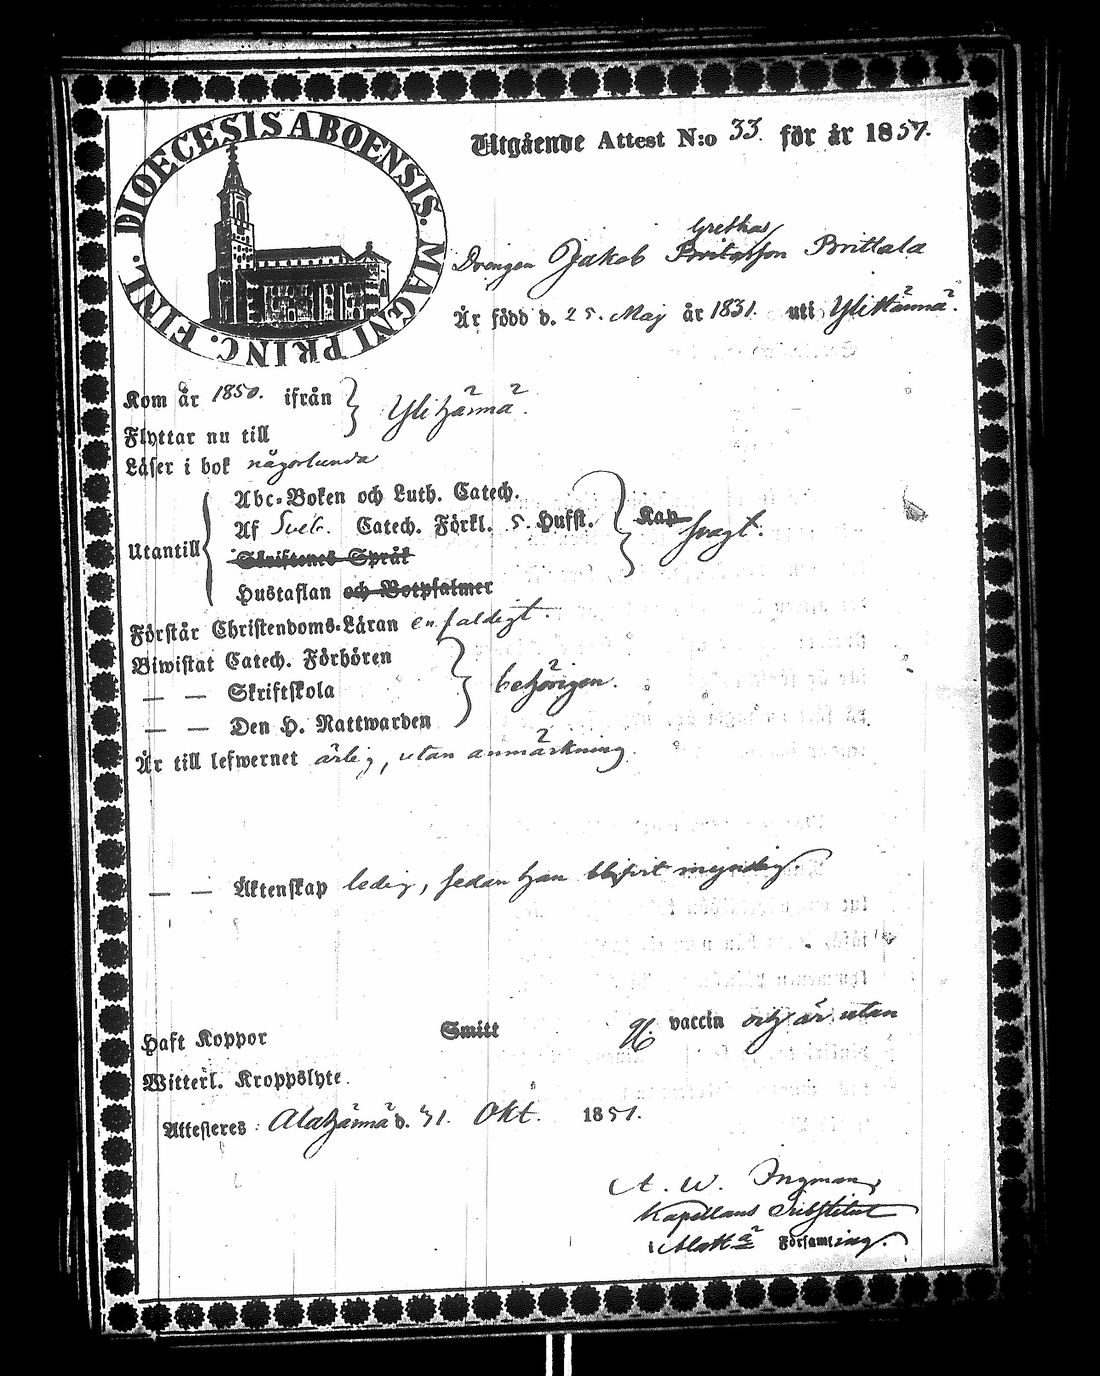 DIOECESIS ABOENSIS. MAGNI PRINC. FINL.
Utgående Attest N:o 33. för år 1851.
Grethas
Drengen Jakob Brittala
Är född d. 25. Maj år 1831. uti Ylihärmä.
Kom år 1850. ifrån
Flyttar nu till
Ylihärmä.
Läser i bok någorlunda
Utantill
Abc-Boken och Luth. Catech.
Af Sveb. Catech. Förkl. 5. Hufst.
Skriftenes Språk
Hustaflan och Botpsalmer
Kap svagt.
Förstår Christendoms-Läran enfaldigt.
Biwistat Catech. Förhören
— — Skriftskola
— — Den H. Nattwarden
behörigen.
Är till lefwernet ärlig, utan anmärkning.
— — Äktenskap ledig, sedan han blifvit myndig.
Haft Koppor Smitt vaccin och är utan
Witterl. Kroppslyte.
Attesteres Alahärmä d. 31. Okt. 1851.
A. W. Ingman,
Kapellans Substitut
Församling.